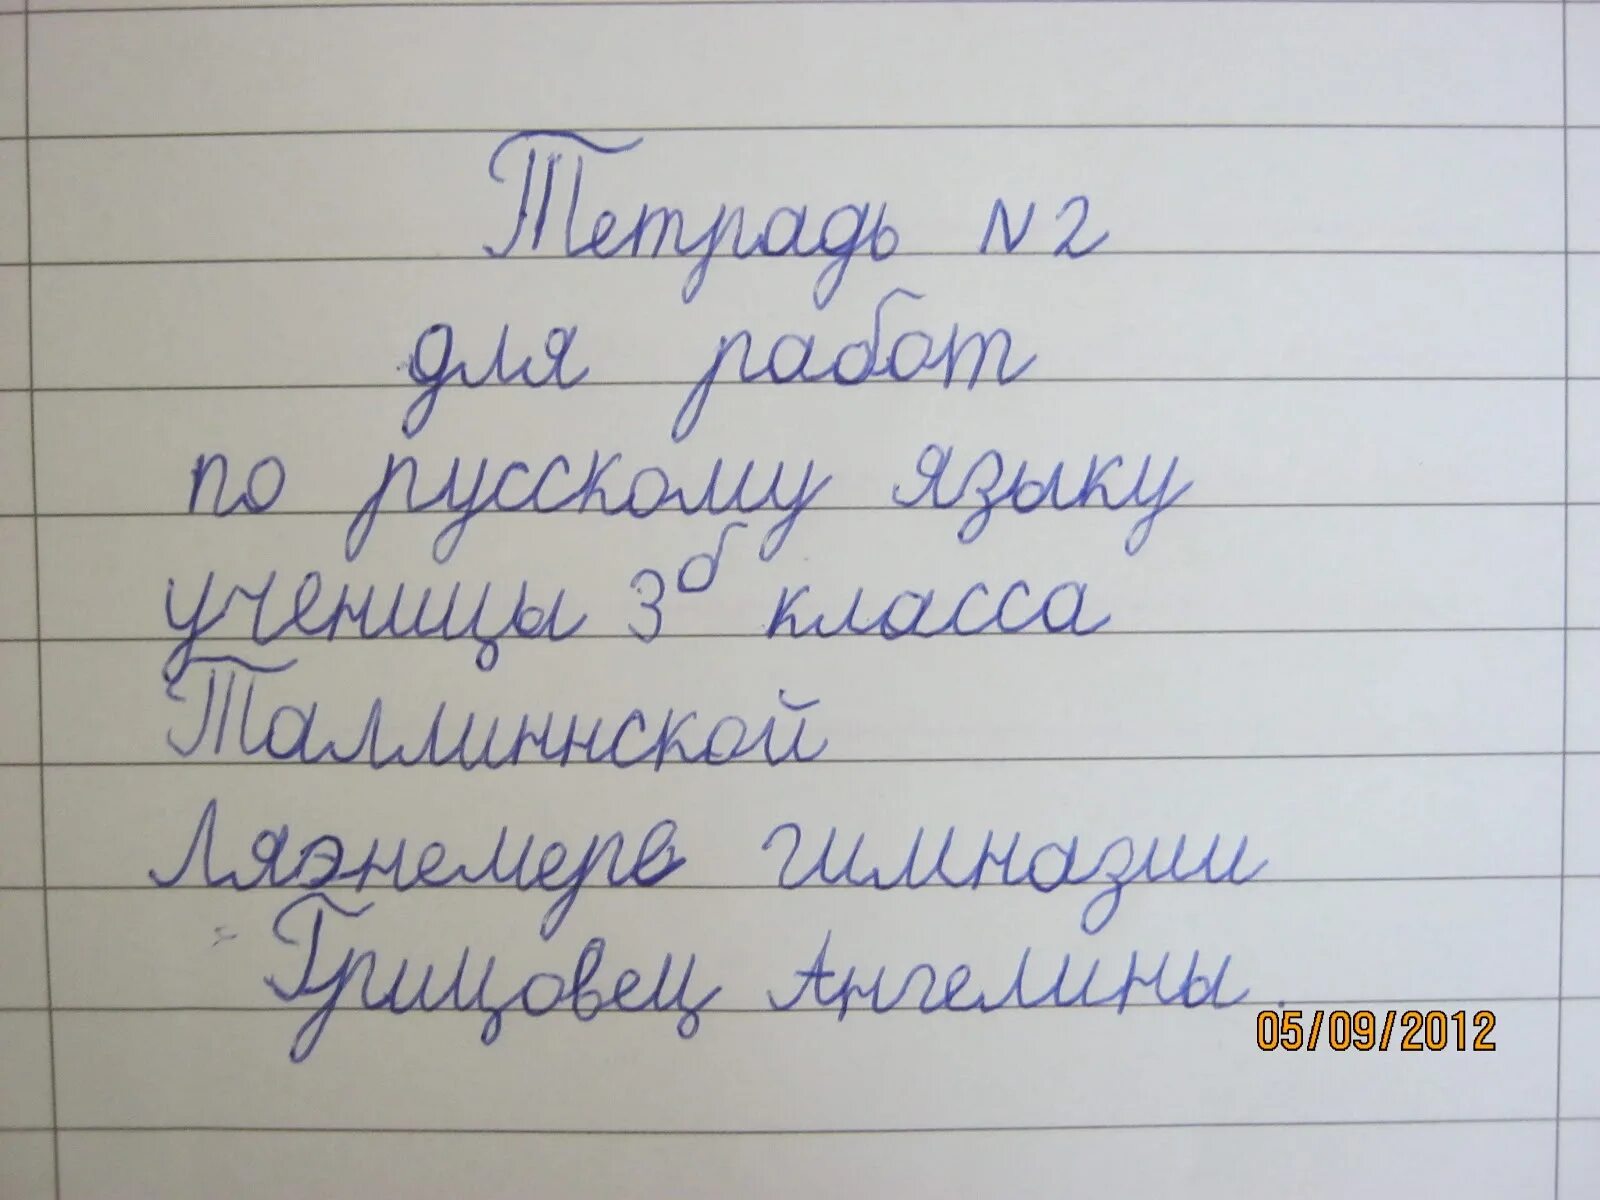 Тетрадь N 2
для работ
по русскому языку
ученицы 3б класса
Таллиннской
Ляэнемере гимназии
Грицовец Ангелины.
05/09/2012